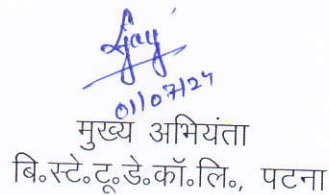 01/07/24
मुख्य अभियंता
बि०स्टे०टू०डे०कॉ०लि०, पटना